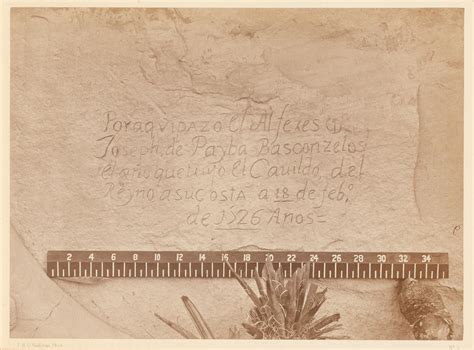 Por aqui pazo el Alferes Dn
Joseph de Payba Basconzelos
el año que tuvo el Cavildo del
Reyno a su costa a 18 de febo
de 1526 Años
2 4 6 8 10 12 14 16 18 20 22 24 26 28 30 32 34